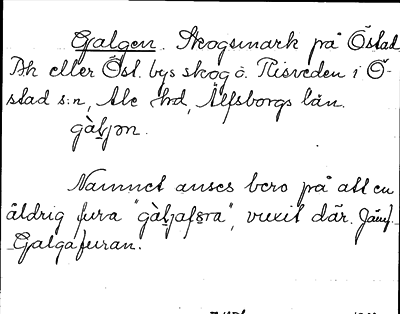 Galgen. Skogsmark på Östad
Ak eller Öst. bys skog o. Risveden i Ö-
stad s:n, Ale hd, Älfsborgs län.
gàljən.
Namnet anses bero på att en
äldrig fura "gàljafɷra", vuxit där. Jämf.
Galgafuran.